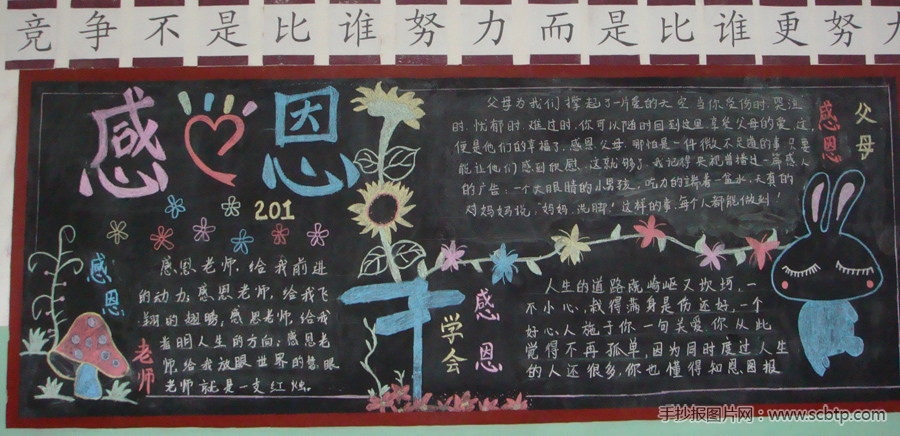 竞争不是比谁努力而是比谁更努力
感恩
201
父母为我们撑起了一片爱的天空当你受伤时.哭泣
时.忧郁时.难过时.你可以随时回到这里享受父母的爱.这
便是他们的幸福了.感恩父母.哪怕是一件微不足道的事.只要
能让他们感到欣慰.这就够了.我记得央视曾播过一篇感人
的广告:一个大眼睛的小男孩,吃力的端着一盆水,天真的
对妈妈说:"妈妈.洗脚!"这样的事.每个人都能做到!
感恩
父母
感恩
老师
感恩老师,给我前进
的动力;感恩老师,给我飞
翔的翅膀;感恩老师,给我
着明人生的方向;感恩老
师,给我放眼世界的慧眼
老师就是一支红烛。
学会
感恩
人生的道路既崎岖又坎坷,一
不小心,我得满身是伤还好,一个
好心人施于你一句关爱.你从此
觉得不再孤单,因为同时度过人生
的人还很多,你也懂得知恩图报
手抄报图片网:www.scbtp.com